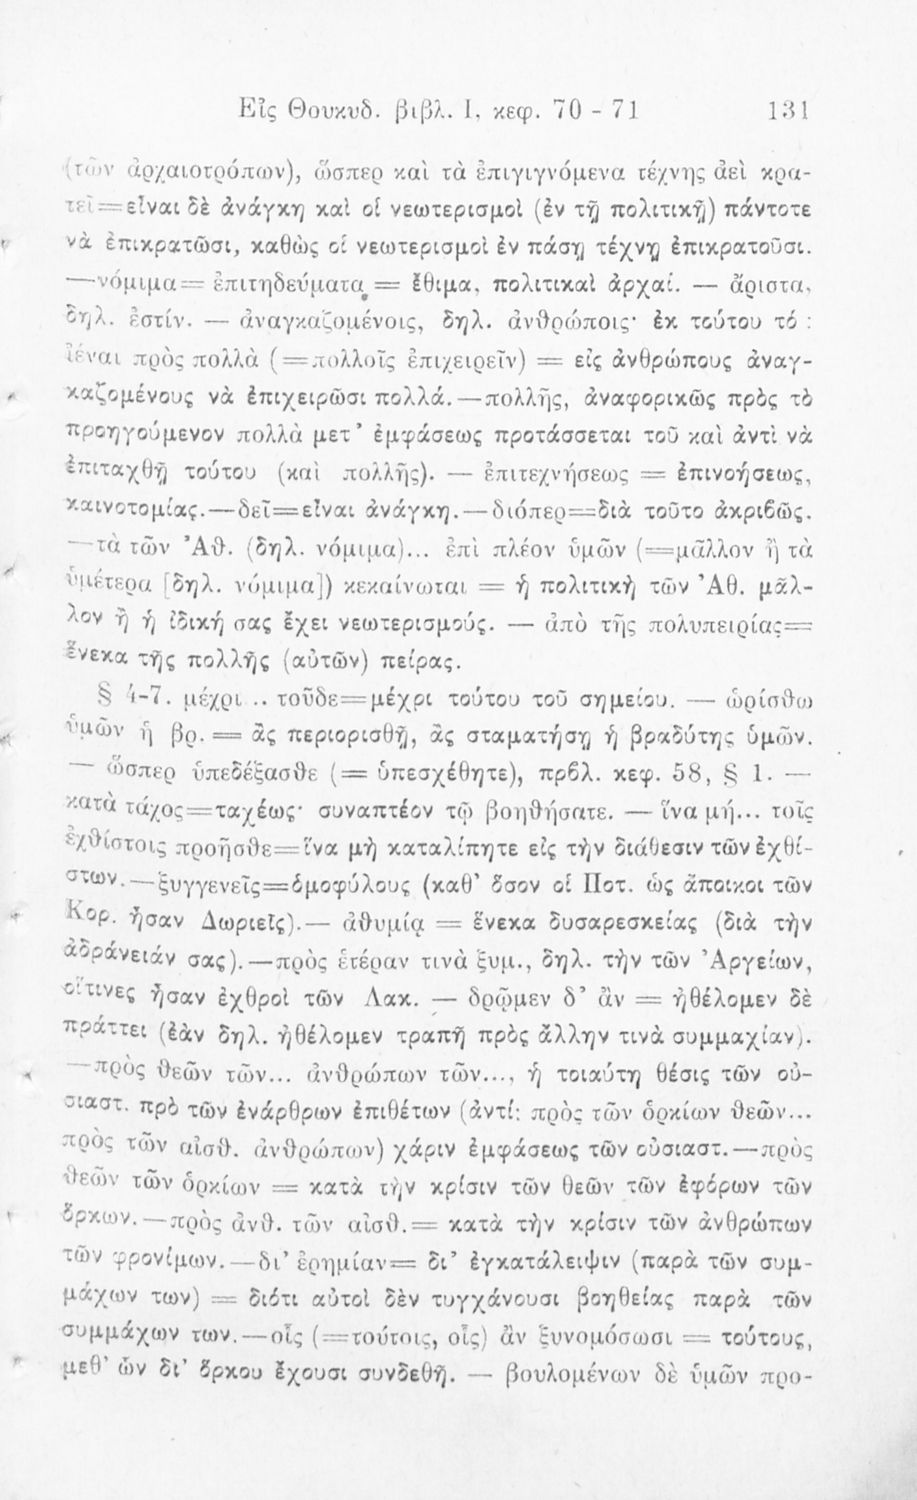 Εἰς Θουκυδ. βιβλ. Ι, κεφ. 70 - 71 131
(τῶν ἀρχαιοτρόπων), ὥσπερ καὶ τὰ ἐπιγιγνόμενα τέχνης ἀεὶ κρα-
τεῖ=εἶναι δὲ ἀνάγκη καὶ οἱ νεωτερισμοὶ (ἐν τῇ πολιτικῇ) πάντοτε
νὰ ἐπικρατῶσι, καθὼς οἱ νεωτερισμοὶ ἐν πάσῃ τέχνῃ ἐπικρατοῦσι.
—νόμιμα= ἐπιτηδεύματα = ἔθιμα, πολιτικαὶ ἀρχαί. — ἄριστα,
δηλ. ἐστίν. — ἀναγκαζομένοις, δηλ. ἀνθρώποις· ἐκ τούτου τό :
ἰέναι πρὸς πολλὰ (=πολλοῖς ἐπιχειρεῖν) = εἰς ἀνθρώπους ἀναγ-
καζομένους νὰ ἐπιχειρῶσι πολλά.—πολλῆς, ἀναφορικῶς πρὸς τὸ
προηγούμενον πολλὰ μετ’ ἐμφάσεως προτάσσεται τοῦ καὶ ἀντὶ νὰ
ἐπιταχθῇ τούτου (καὶ πολλῆς). — ἐπιτεχνήσεως = ἐπινοήσεως,
καινοτομίας.—δεῖ=εἶναι ἀνάγκη.—διόπερ=διὰ τοῦτο ἀκριβῶς.
—τὰ τῶν Ἀθ. (δηλ. νόμιμα)... ἐπὶ πλέον ὑμῶν (=μᾶλλον ἢ τὰ
ὑμέτερα [δηλ. νόμιμα]) κεκαίνωται = ἡ πολιτικὴ τῶν Ἀθ. μᾶλ-
λον ἢ ἡ ἰδική σας ἔχει νεωτερισμούς. — ἀπὸ τῆς πολυπειρίας=
ἕνεκα τῆς πολλῆς (αὐτῶν) πείρας.
§ 4-7. μέχρι .. τοῦδε=μέχρι τούτου τοῦ σημείου. — ὡρίσθω
ὑμῶν ἡ βρ. = ἂς περιορισθῇ, ἂς σταματήσῃ ἡ βραδύτης ὑμῶν.
— ὥσπερ ὑπεδέξασθε (= ὑπεσχέθητε), πρβλ. κεφ. 58, § 1. —
κατὰ τάχος=ταχέως· συναπτέον τῷ βοηθήσατε. — ἵνα μή... τοῖς
ἐχθίστοις προῆσθε=ἵνα μὴ καταλίπητε εἰς τὴν διάθεσιν τῶν ἐχθί-
στων.—ξυγγενεῖς=ὁμοφύλους (καθ’ ὅσον οἱ Ποτ. ὡς ἄποικοι τῶν
Κορ. ἦσαν Δωριεῖς).— ἀθυμίᾳ = ἕνεκα δυσαρεσκείας (διὰ τὴν
ἀδράνειάν σας).—πρὸς ἑτέραν τινὰ ξυμ., δηλ. τὴν τῶν Ἀργείων,
οἵτινες ἦσαν ἐχθροὶ τῶν Λακ. — δρῷμεν δ’ ἂν = ἠθέλομεν δὲ
πράττει (ἐὰν δηλ. ἠθέλομεν τραπῆ πρὸς ἄλλην τινὰ συμμαχίαν).
—πρὸς θεῶν τῶν... ἀνθρώπων τῶν..., ἡ τοιαύτη θέσις τῶν οὐ-
σιαστ. πρὸ τῶν ἐνάρθρων ἐπιθέτων (ἀντί: πρὸς τῶν ὁρκίων θεῶν...
πρὸς τῶν αἰσθ. ἀνθρώπων) χάριν ἐμφάσεως τῶν οὐσιαστ.—πρὸς
θεῶν τῶν ὁρκίων = κατὰ τὴν κρίσιν τῶν θεῶν τῶν ἐφόρων τῶν
ὅρκων.—πρὸς ἀνθ. τῶν αἰσθ.= κατὰ τὴν κρίσιν τῶν ἀνθρώπων
τῶν φρονίμων.—δι’ ἐρημίαν= δι’ ἐγκατάλειψιν (παρὰ τῶν συμ-
μάχων των) = διότι αὐτοὶ δὲν τυγχάνουσι βοηθείας παρὰ τῶν
συμμάχων των.—οἷς (=τούτοις, οἷς) ἂν ξυνομόσωσι = τούτους,
μεθ’ ὧν δι’ ὅρκου ἔχουσι συνδεθῆ. — βουλομένων δὲ ὑμῶν προ-